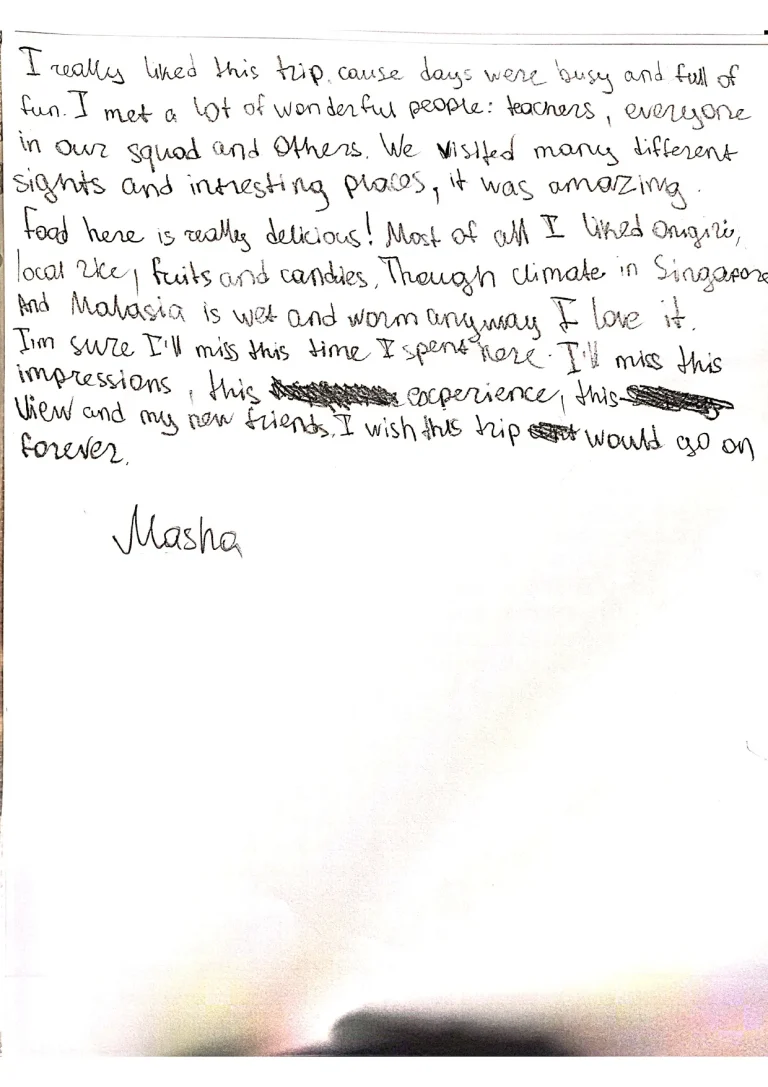 I really liked this trip, cause days were busy and full of
fun. I met a lot of wonderful people: teachers, everyone
in our squad and others. We visited many different
sights and intresting places, it was amazing.
Food here is really delicious! Most of all I liked onigiri,
local rice, fruits and candies. Though climate in Singapore
And Malasia is wet and worm anyway I love it.
I'm sure I'll miss this time I spent here. I'll miss this
impressions, this experience, this
view and my new friends. I wish this trip would go on
forever.
Masha